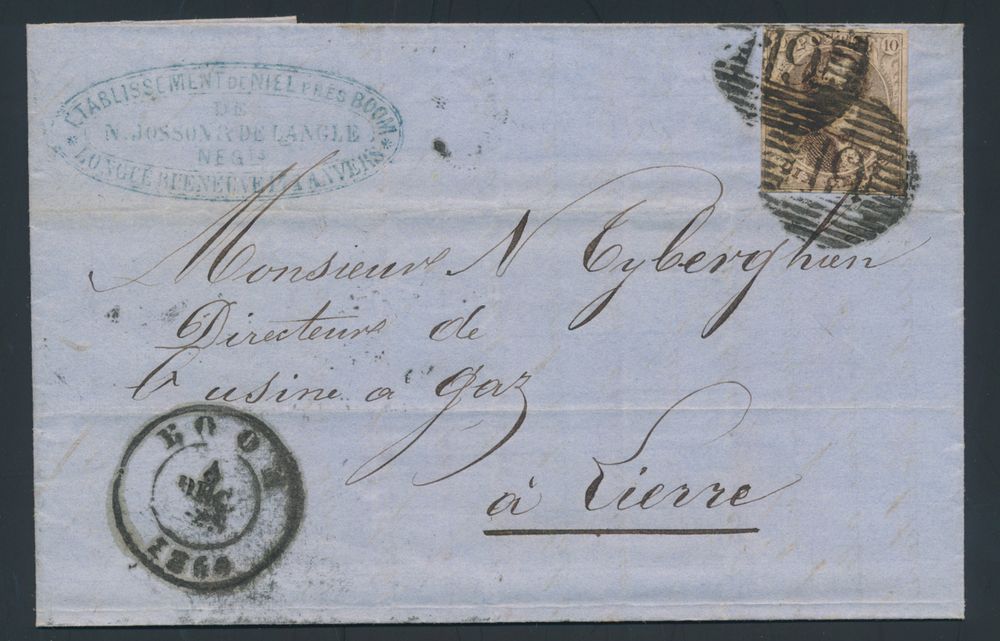 ETABLISSEMENT DE NIEL PRÈS BOOM
DE
N. JOSSON & DE LANGLE
NEGts
LONGUE RUE NEUVE ANVERS
10
Monsieur N Tyberghien
Directeur de
l'usine a gaz
à Lierre
BOOM
DEC